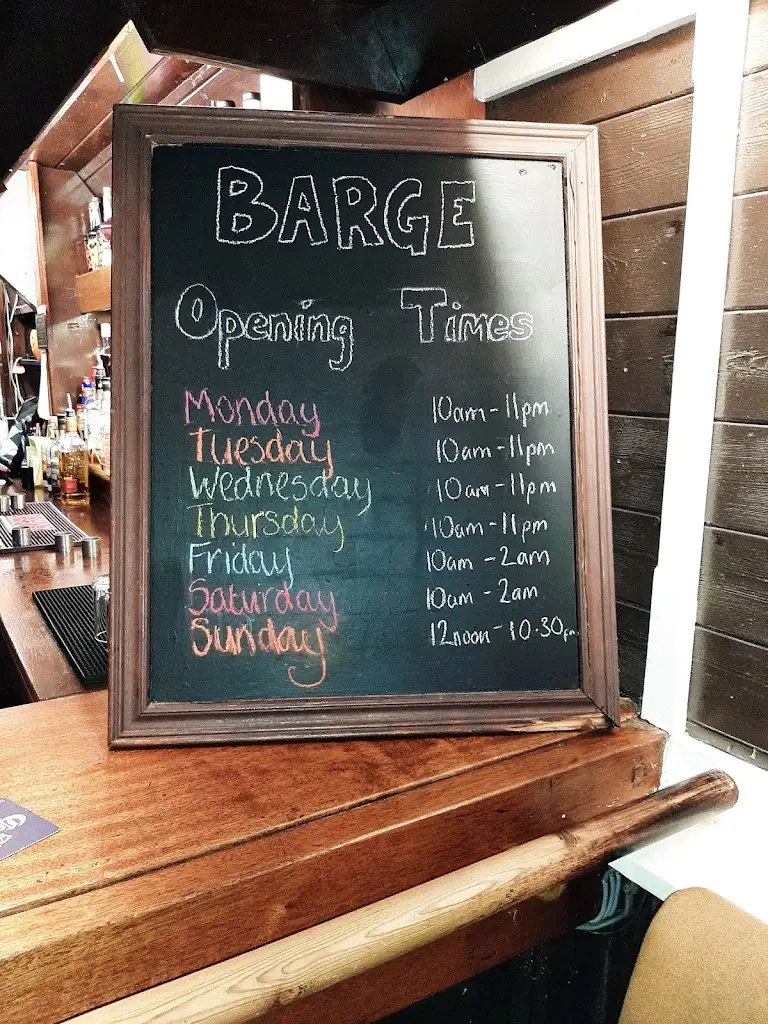 BARGE
Opening Times
Monday 10am - 11pm
Tuesday 10am - 11pm
Wednesday 10am - 11pm
Thursday 10am - 11pm
Friday 10am - 2am
Saturday 10am - 2am
Sunday 12noon - 10.30pm